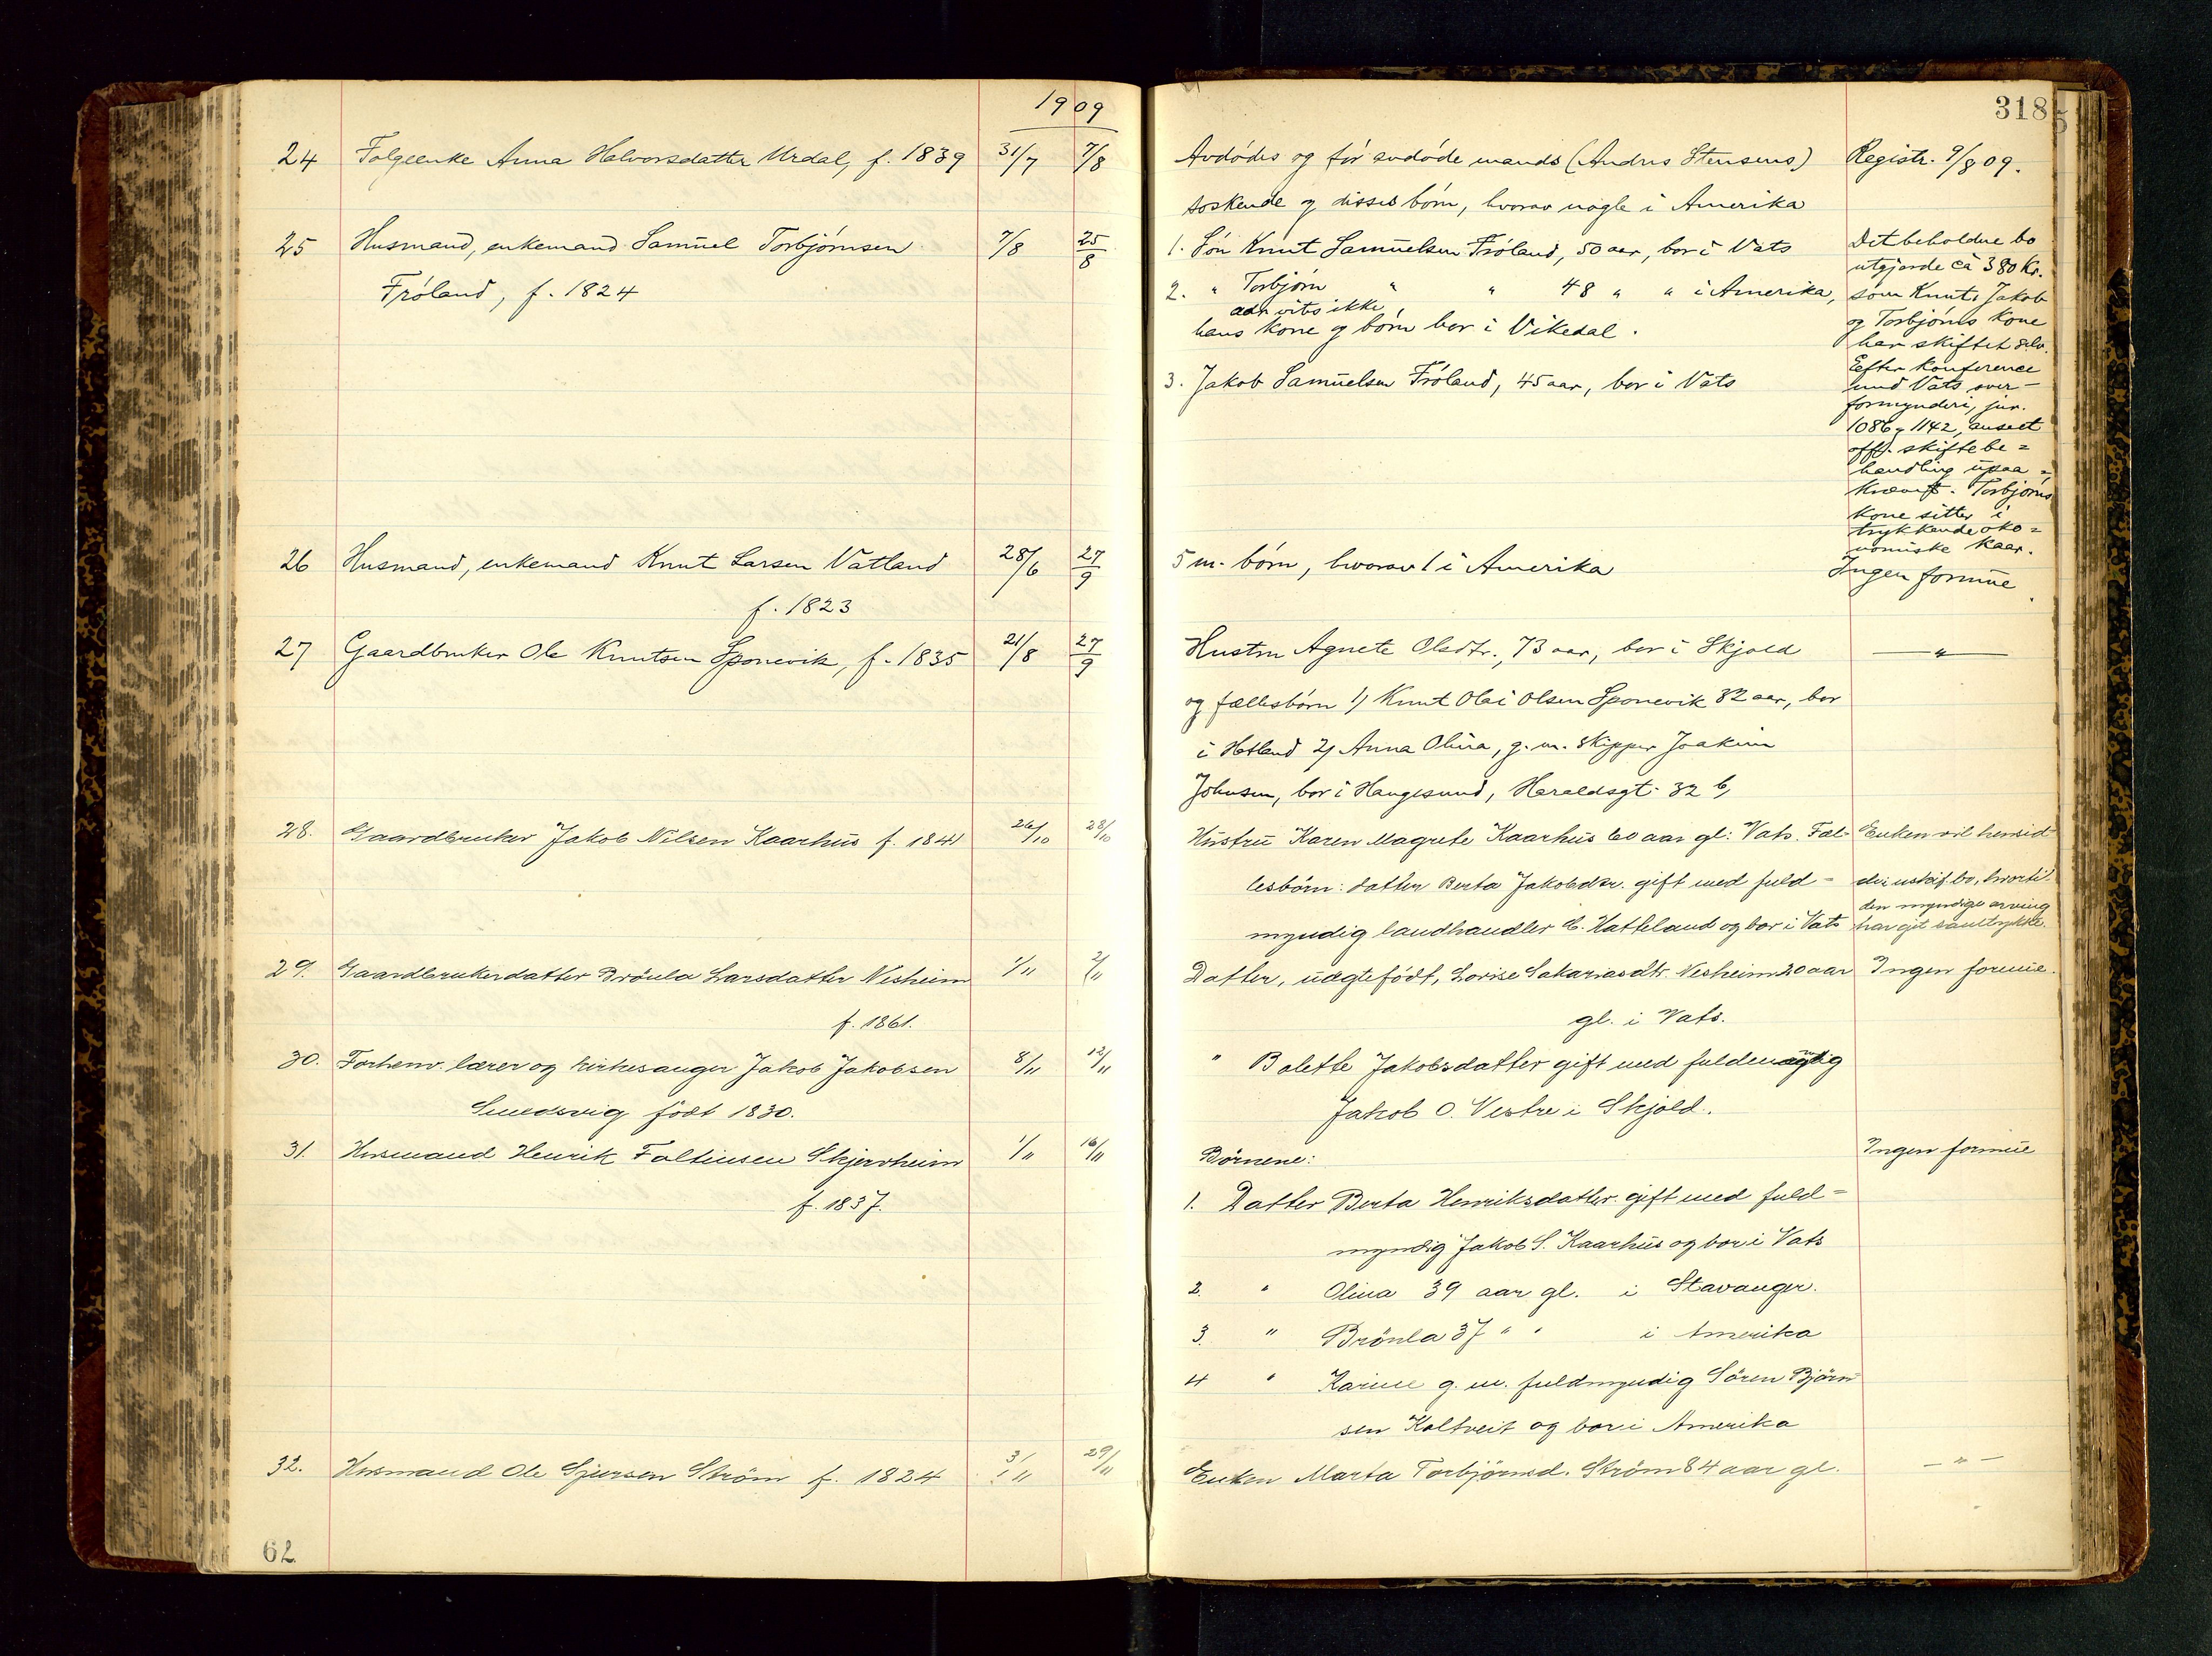 1909
318
24 Folgeenke Anna Halvorsdatter Urdal, f. 1839 31/7 7/8 Avdødes og før avdøde mands (Andres Stensens) Registr. 9/8 09.
søskende og disses børn, hvorav nogle i Amerika
25 Husmand, enkemand Samuel Torbjørnsen 7/8 25/8 1. Søn Knut Samuelsen Frøland, 50 aar, bor i Vats
Frøland, f. 1824
2. " Torbjørn " " 48 " " i Amerika,
adr. vites ikke,
hans kone og børn bor i Vikedal.
3. Jakob Samuelsen Frøland, 45 aar, bor i Vats
Det beholdne bo
utgjorde ca 380 Kr.
som Knut, Jakob
og Torbjørns kone
har skiftet selv.
Efter konference
med Vats over-
formynderi, jur.
1086 og 1142, anseet
offl. skiftebe=
handling upaa=
krævet. Torbjørns
kone sitter i
trykkende øko=
nomiske kaar.
26 Husmand, enkemand Knut Larsen Vatland 28/6 27/9 5 m. børn, hvorav 1 i Amerika Ingen formue
f. 1823
27 Gaardbruker Ole Knutsen Sponevik, f. 1835 21/8 27/9 Hustru Agnete Olsdtr., 73 aar, bor i Skjold — " —
og fællesbørn 1) Knut Olai Olsen Sponevik 32 aar, bor
i Hetland 2) Anna Olina, g. m. skipper Joakim
Johnsen, bor i Haugesund, Haraldsgt. 32 b,
28. Gaardbruker Jakob Nilsen Kaarhus f. 1841 26/10 28/10 Hustru Karen Magrete Kaarhus 60 aar gl: Vats. Fæl- Enken vil hensid-
lesbørn: datter Berta Jakobsdtr. gift med fuld- de i uskif. bo, hvortil
den myndige arving
myndig landhandler E. Hatteland og bor i Vats har git samtykke.
29. Gaardbrukerdatter Brönla Larsdatter Nesheim 1/11 2/11 Datter, uægtefödt, Lovise Sakariasdtr. Nesheim 20 aar Ingen formue.
f. 1861. gl. i Vats.
30. Forhenv. lærer og kirkesanger Jakob Jakobsen 8/11 12/11 " Bolette Jakobsdatter gift med fuldmyndig
Smedsvig födt 1830. Jakob O. Vestre i Skjold.
31. Husmand Henrik Faltinsen Skjerheim 1/11 16/11 Börnene: Ingen formue
f. 1837. 1. Datter Berta Henriksdatter gift med fuld-
myndig Jakob S. Kaarhus og bor i Vats
2. " Olina 39 aar gl. i Stavanger.
3. " Brönla 37 " " i Amerika
4 " Karine g. m. fuldmyndig Sören Björn-
sen Koltveit og bor i Amerika
32. Husmand Ole Sjursen Ström f. 1824 3/11 29/11 Enken Marta Torbjörnsd. Ström 84 aar gl. — " —
62